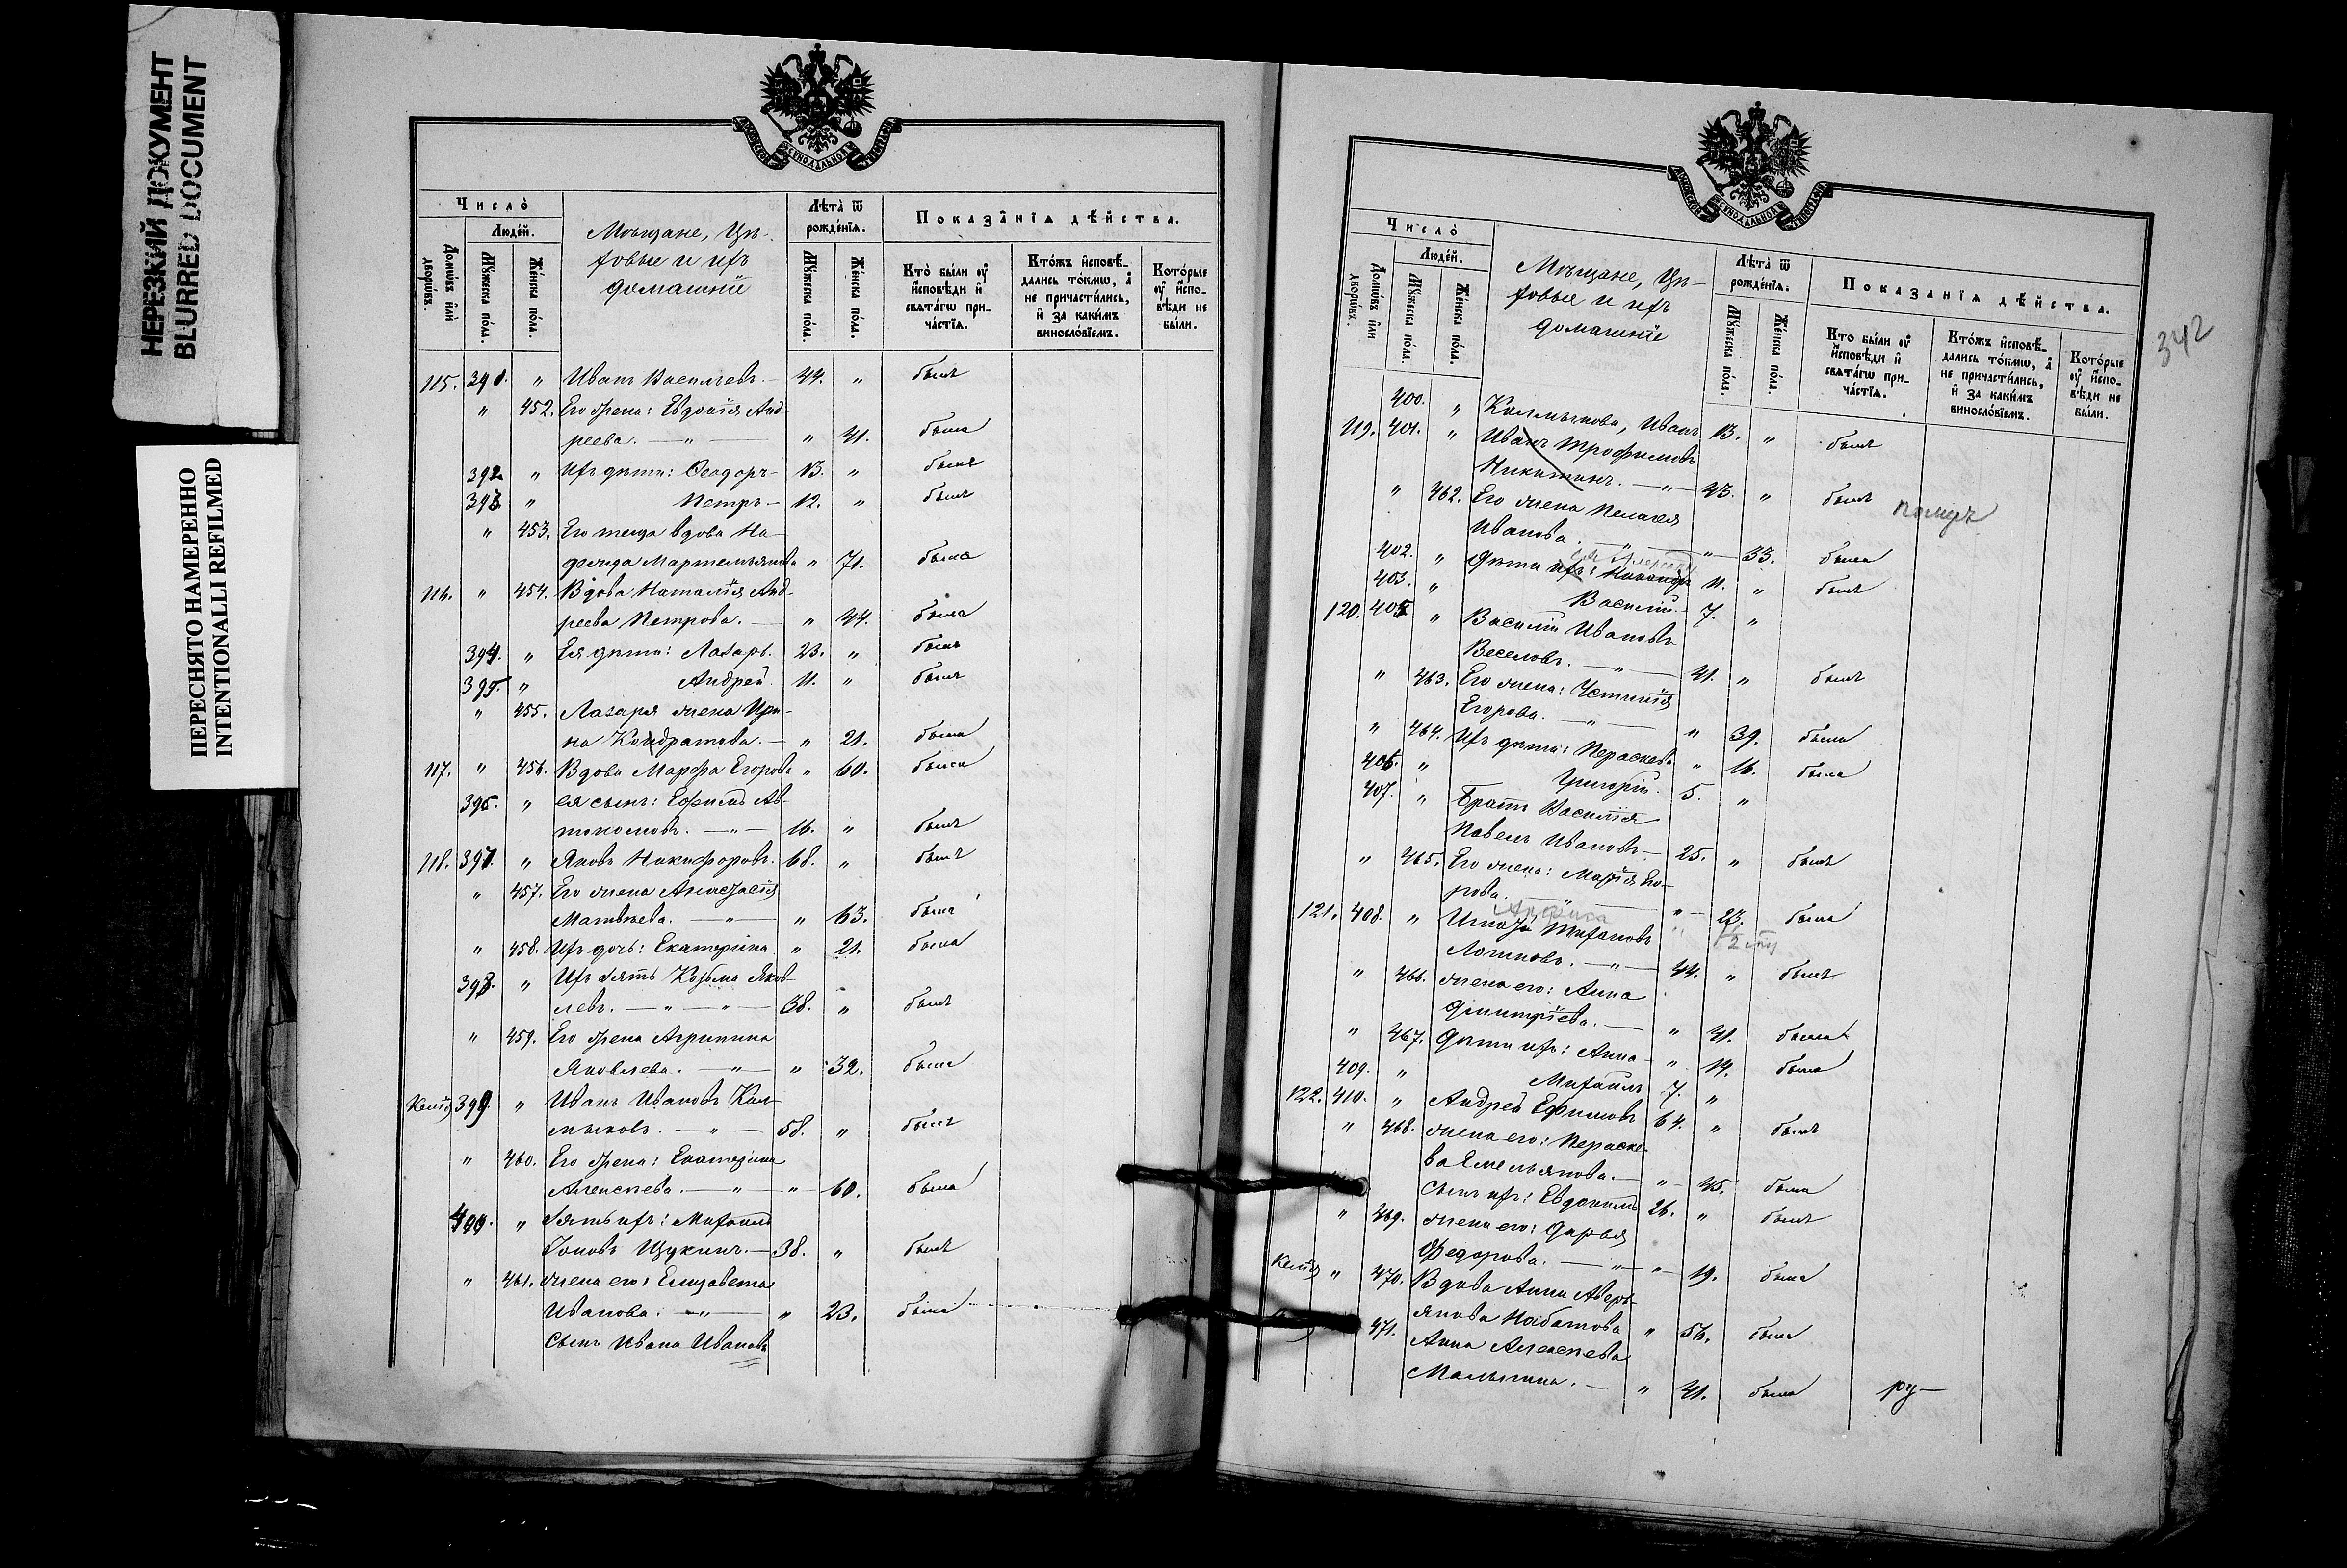 НЕРЕЗКИЙ ДОКУМЕНТ
BLURRED DOCUMENT
ПЕРЕСНЯТО НАМЕРЕННО
INTENTIONALLI REFILMED
Число̀
Людей.
Домѡвъ и҆лѝ дворѡвъ.
Мꙋ́жеска по́ла.
Же́нска по́ла.
Мѣщане, Цѣ-
ховые и ихъ
домашніе
Лѣта̀ ѿ рожде́нїѧ.
Мꙋ́жеска по́ла.
Же́нска по́ла.
Показа̑нїѧ дѣ́йства.
Кто̀ бы́ли ᲂу҆ и҆сповѣ́ди и҆ свѧта́гѡ при- ча́стїѧ.
Кто́жъ и҆сповѣ́- дались то́кмѡ, а҆ не причасти́лись, и҆ за каки́мъ винослόвїемъ.
Кото́рые ᲂу҆ и҆спо- вѣ́ди не бы́ли.
115. 391. " Иванъ Васильевъ. — 44. " былъ
" 452. Его жена: Евдокія Анд-
реева. — " — " 41. была
392 " Ихъ дѣти: Ѳеодоръ — 13. " былъ
393. " Петръ — 12. " былъ
" 453. Его теща вдова На-
дежда Мартемьянова " 71. была
116. " 454. Вдова Наталія Анд-
реева Петрова. — " 44. была
394. " Ея дѣти: Лазарь. 23. " былъ
395. " Андрей. 11. " былъ
" 455. Лазаря жена Ири-
на Кондратова. — " 21. была
117. " 456. Вдова Марфа Егорова " 60. была
396. " ея сынъ: Ефимъ Ав-
тономовъ. — " — 16. " былъ
118. 397. " Яковъ Никифоровъ. 68. " былъ
" 457. Его жена Анастасія
Матвѣева. — " — " 63. была
" 458. Ихъ дочь: Екатерина " 21. была
398. " Ихъ зять Козьма Яков-
левъ. — " — " — 38. " былъ
" 459. Его жена Агрипина
Яковлева. — " — " 32. была
Келія 399. " Иванъ Ивановъ Кал-
мыковъ. — " — 58. " былъ
" 460. Его жена: Екатерина
Алексѣева. — " — " — 60. была
400. " Зять ихъ: Михаилъ
Іоновъ Щукинъ. — 38. " былъ
" 461. жена его: Елизавета
Иванова. — " — " 23. была
Сынъ Ивана Иванова
342
Число̀
Людей.
Домѡвъ и҆лѝ дворѡвъ.
Мꙋ́жеска по́ла.
Же́нска по́ла.
Мѣщане, Цѣ-
ховые и ихъ
домашніе
Лѣта̀ ѿ рожде́нїѧ.
Мꙋ́жеска по́ла.
Же́нска по́ла.
Показа̑нїѧ дѣ́йства.
Кто̀ бы́ли ᲂу҆ и҆сповѣ́ди и҆ свѧта́гѡ при- ча́стїѧ.
Кто́жъ и҆сповѣ́- дались то́кмѡ, а҆ не причасти́лись, и҆ за каки́мъ винослόвїемъ.
Кото́рые ᲂу҆ и҆спо- вѣ́ди не бы́ли.
400. " Калмыкова, Иванъ 13. " былъ
119. 401. " Иванъ Трофимовъ
Никитинъ. — " — 43. " былъ померъ
" 462. Его жена Пелагея
Иванова. — " — " — 33. была
402. " Дѣти ихъ: Никандръ 11. " былъ
403. " Василій. — 7. "
120. 405 " Василій Ивановъ
Веселовъ. — " — 41. " былъ
" 463. Его жена: Устинія
Егорова. — " — " 39. была
" 464. Ихъ дѣти: Параскева " 16. была
406. " Григорій. 5. "
407. " Братъ Василія
Павелъ Ивановъ — 25. " былъ
" 465. Его жена: Марія Его-
рова. — " — " — 23. была
121. 408. " Игнатій Михайловъ
Логиновъ. — " — 44. " былъ
" 466. жена его: Анна
Димитріева. — " 41. была
" 467. Дѣти ихъ: Анна — " 14. была
409. " Михаилъ 7. "
122. 410. " Андрей Ефимовъ 64. " былъ
" 468. жена его: Параске-
ва Емельянова. — " — 45. была
Сынъ ихъ: Евдокимъ 26. " былъ
" 469. жена его: Дарья
Ѳедорова. — " — " — 19. была
Келія " 470. Вдова Анна Аверь-
янова Набатова " 56. была
471. Анна Алексѣева
Малыгина. — " 41. была
ру—